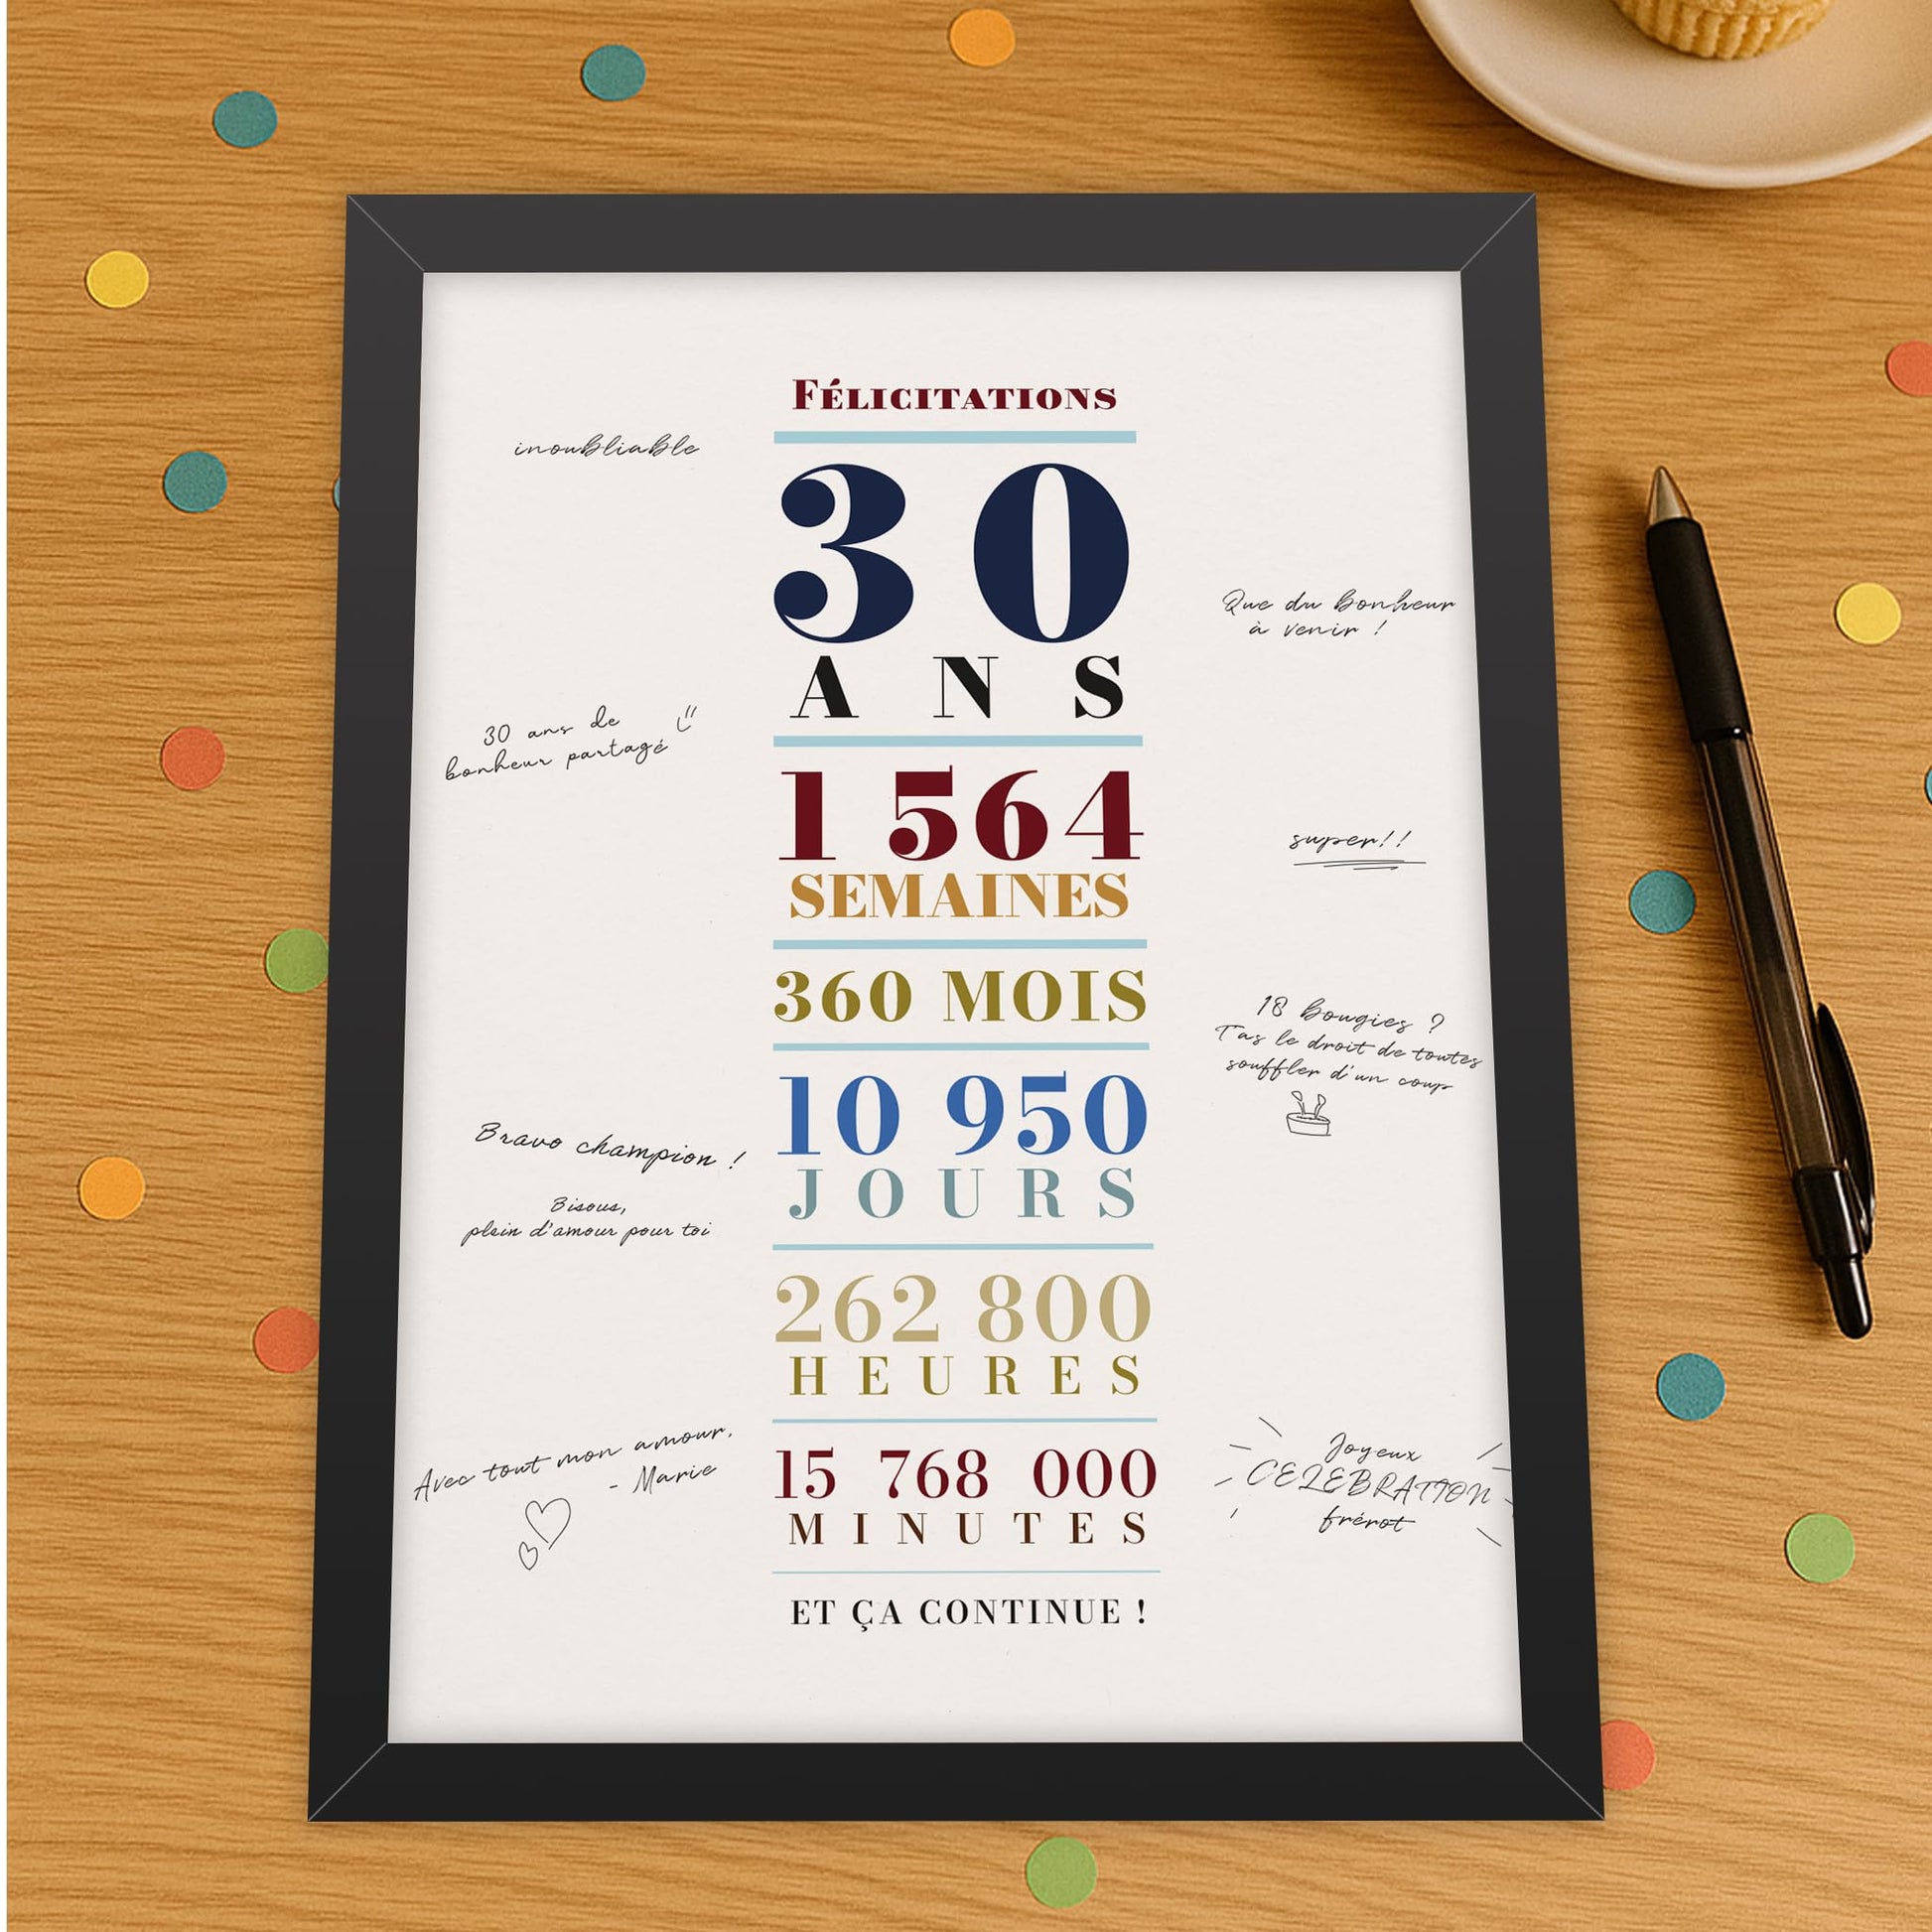 Félicitations
30
ANS
1 564
SEMAINES
360 MOIS
10 950
JOURS
262 800
HEURES
15 768 000
MINUTES
ET ÇA CONTINUE !
inoubliable
30 ans de
bonheur partagé
Bravo champion !
Bisous,
plein d'amour pour toi
Avec tout mon amour,
- Marie
Que du bonheur
à venir !
super!!
18 bougies ?
T'as le droit de toutes
souffler d'un coup
Joyeux
CELEBRATION
frérot